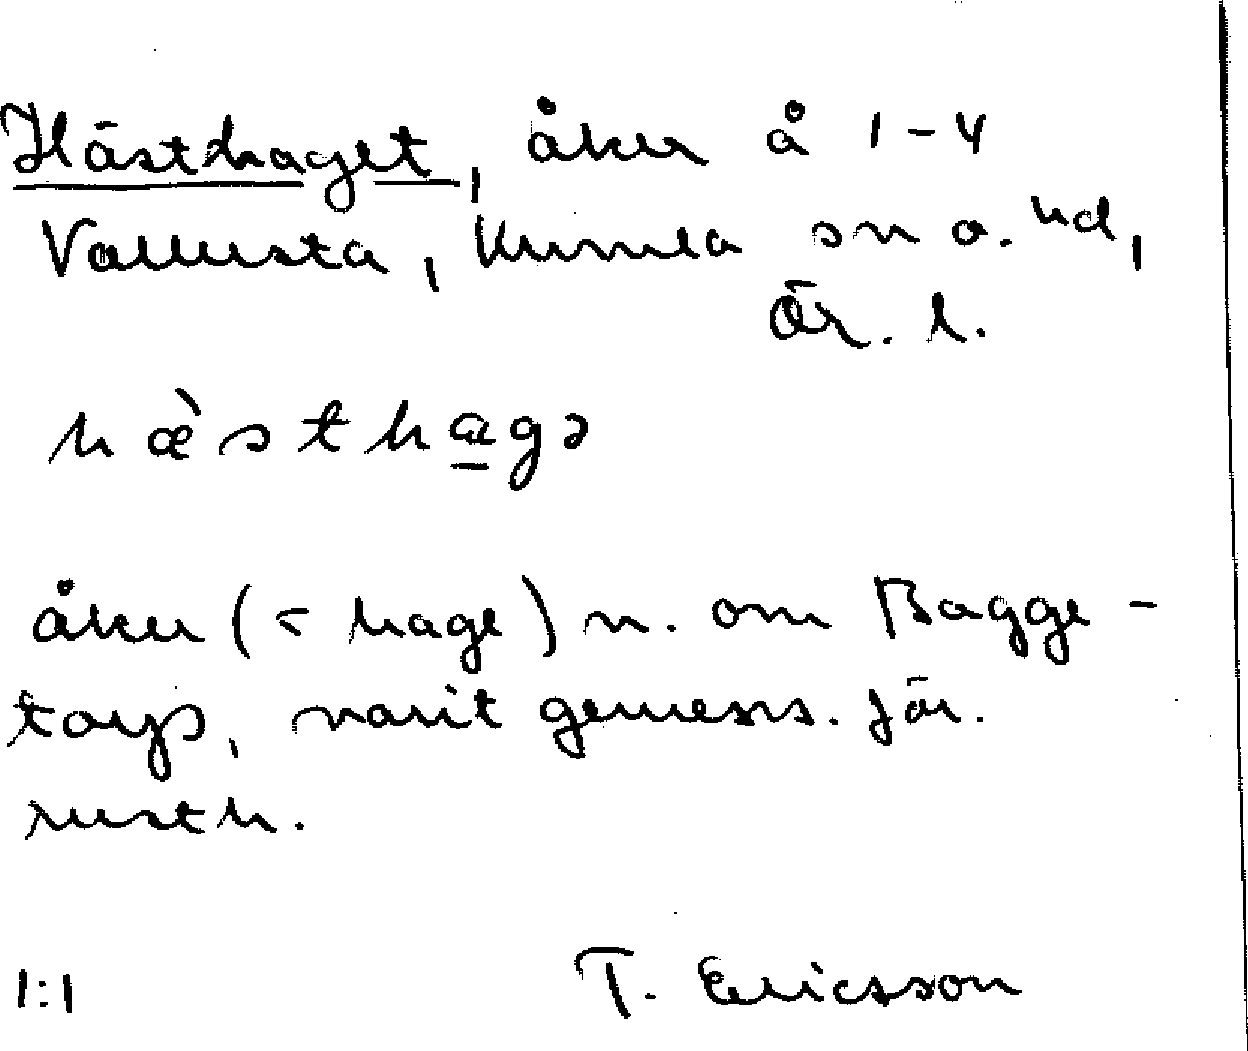 Hästhaget, åker å 1-4
Vallersta, Kumla sn o. hd,
Ör. l.
hæ̀stha̲gə
åker (< hage) n. om Bagge-
torp, varit gemens. för
rusth.
1:1 T. Ericsson